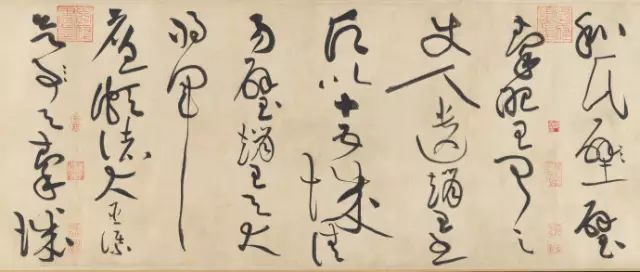 和氏壁璧
秦昭王聞之
使人遺趙王書
願以十五城請
易璧趙王與大
將軍
廉頗諸大臣謀
秦城